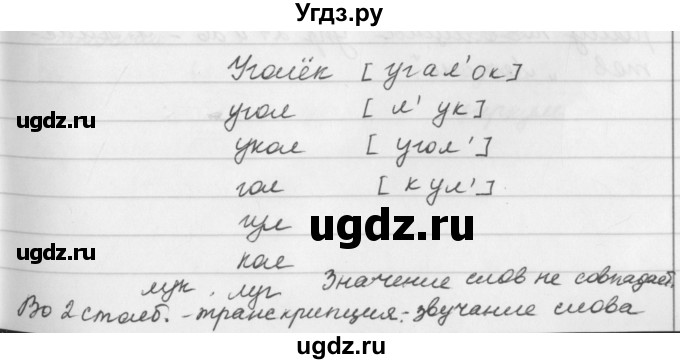 Угдз.ру
Уголёк [угал'ок]
угол [л'ук]
укол [угол']
гол [кул']
гул
кол
лук, луг Значение слов не совпадает.
Во 2 столб. - транскрипция - звучание слова
ugdz.ru
ugdz.ru
ugdz.ru
ugdz.ru
ugdz.ru